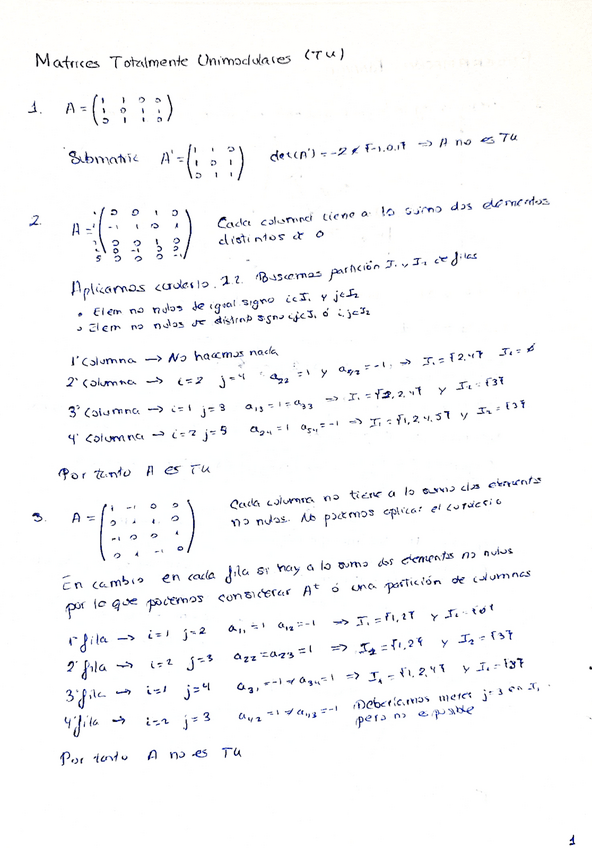 Matrices Totalmente Unimodulares (TU)
1. A = ( 1 1 0 0
1 0 1 1
0 1 1 0 )
Submatriz A' = ( 1 1 0
1 0 1
0 1 1 ) det(A') = -2 ∉ {-1,0,1} ⇒ A no es TU
2. A = ( 0 0 1 0
1 0
0 0 1 0
0 -1 0 0
0 0 0 -1 ) Cada columna tiene a lo sumo dos elementos
distintos de 0
Aplicamos Buscamos partición I₁ y I₂ de filas
• Elem no nulos de igual signo i∈I₁ y j∈I₂
• Elem no nulos de distinto signo i,j∈I₁ ó i,j∈I₂
1ª columna → No hacemos nada
2ª columna → i=2 j=4 a₂₂=1 y a₄₂=-1 ⇒ I₁={2,4} I₂=∅
3ª columna → i=1 j=3 a₁₃=1=a₃₃ ⇒ I₁={1,2,4} y I₂={3}
4ª columna → i=2 j=5 a₂₄=1 a₅₄=-1 ⇒ I₁={1,2,4,5} y I₂={3}
Por tanto A es TU
3. A = ( 1 -1 0 0
0 1 1 0
-1 0 0 1
0 1 -1 0 ) Cada columna no tiene a lo sumo dos elementos
no nulos. No podemos aplicar el
En cambio en cada fila si hay a lo sumo dos elementos no nulos
por lo que podemos considerar Aᵗ ó una partición de columnas
1ª fila → i=1 j=2 a₁₁=1 a₁₂=-1 ⇒ I₁={1,2} y
2ª fila → i=2 j=3 a₂₂=a₂₃=1 ⇒ I₁={1,2} y I₂={3}
3ª fila → i=1 j=4 a₃₁=-1 a₃₄=1 ⇒ I₁={1,2,4} y I₂={3}
4ª fila → i=2 j=3 a₄₂=1 a₄₃=-1 Deberíamos meter j=3 en I₁
pero no es posible
Por tanto A no es TU
1